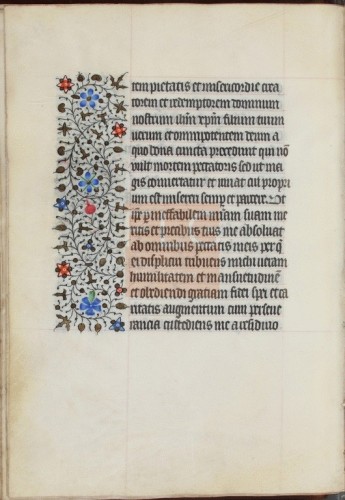 tem pietatis et misericordie crea
torem et redemptorem dominum
nostrum ihm xpm filium tuum
uerum et omnipotentem deum a
quo bona cuncta procedunt qui nō
vult mortem peccatoris sed ut ma
gis conuertatur et uiuat cui propri
um est misereri semp et parcere Ut
ip̄e p ineffabilem miam suam me
ritis et precibus tuis me absoluat
ab omnibus peccatis meis per q̄
ei displicui tribuens michi veram
humilitatem et mansuetudinē
et obediendi gratiam fidei spei et ca
ritatis augmentum cum perseue
rancia custodiens me a residiuo